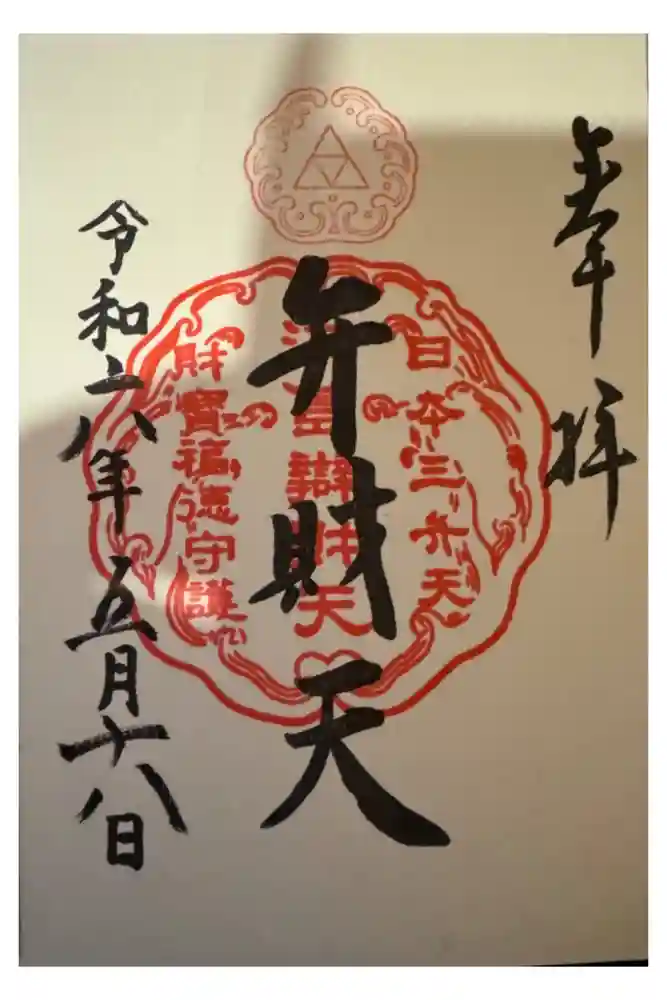 奉拝
日本三弁天
弁財天
江島辯財天
財寶福徳守護
令和六年五月十八日